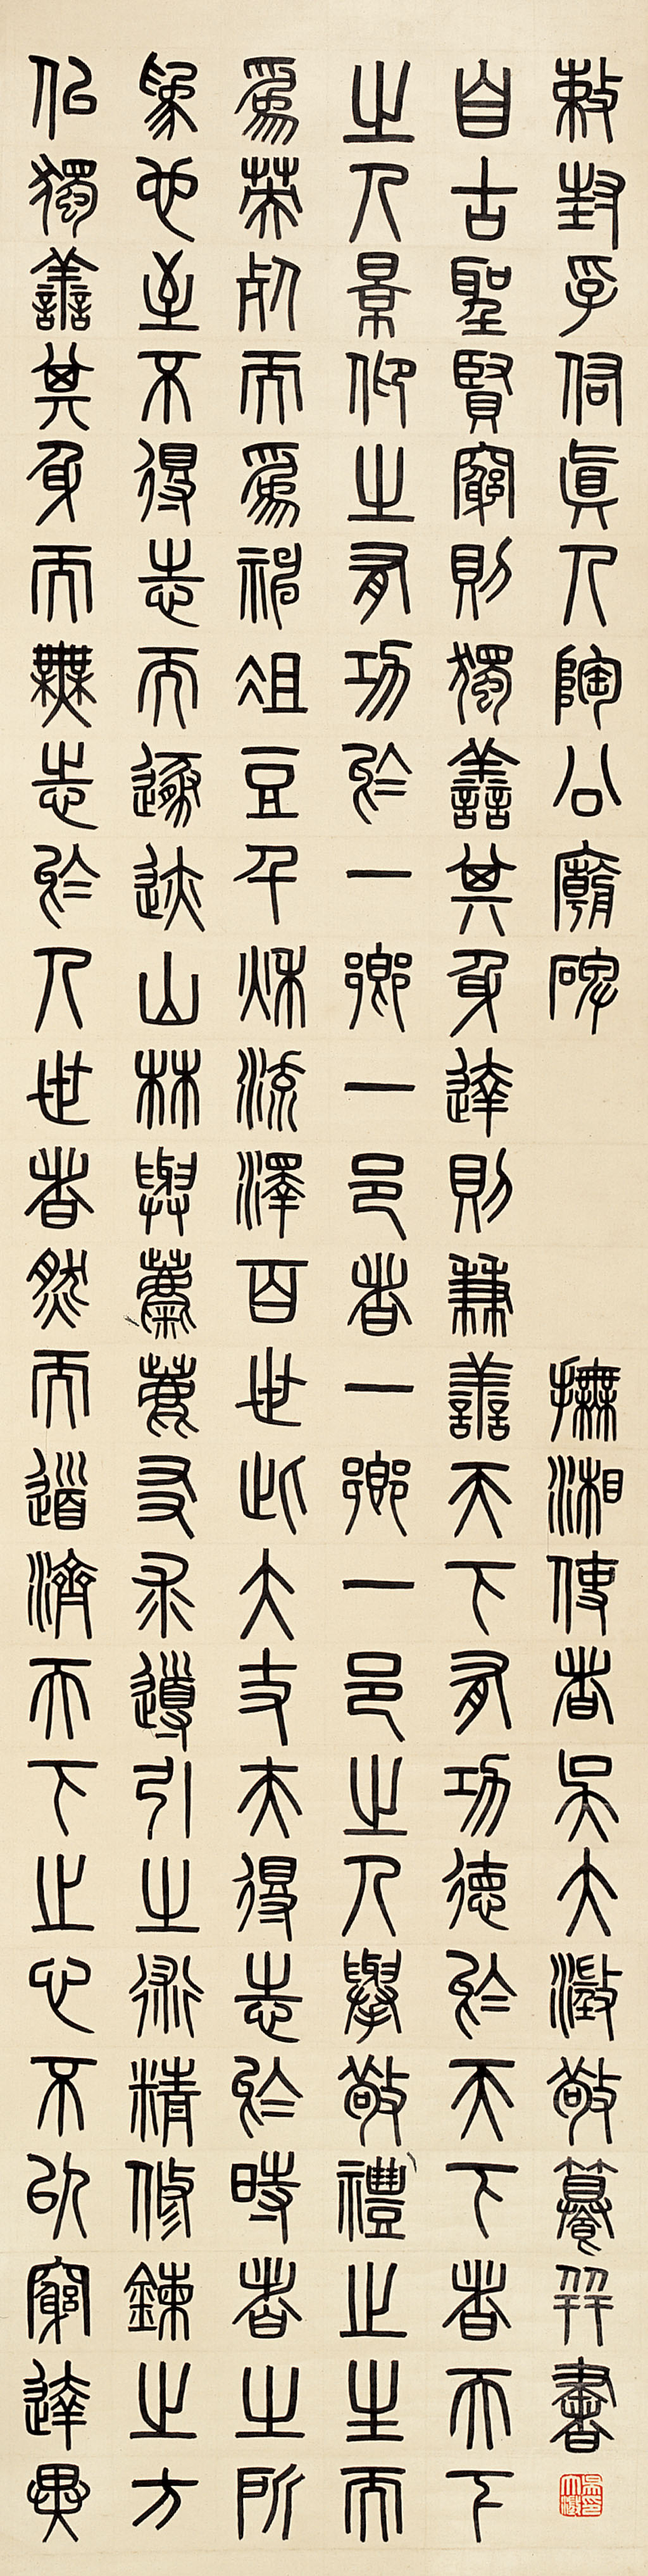 敕封孚佑真人陶公廟碑 撫湘使者吳大澂敬篹并書
自古聖賢窮則獨善其身達則兼善天下有功德於天下者天下
之人景仰之有功於一鄉一邑者一鄉一邑之人舉敬禮之生而
為榮歿而為神俎豆千秋流澤百世此大丈夫得志於時者之所
為也至不得志而遯迹山林與麋鹿友求導引之術精修鍊之方
以獨善其身而無志於人世者然而道濟天下之心不以窮達異